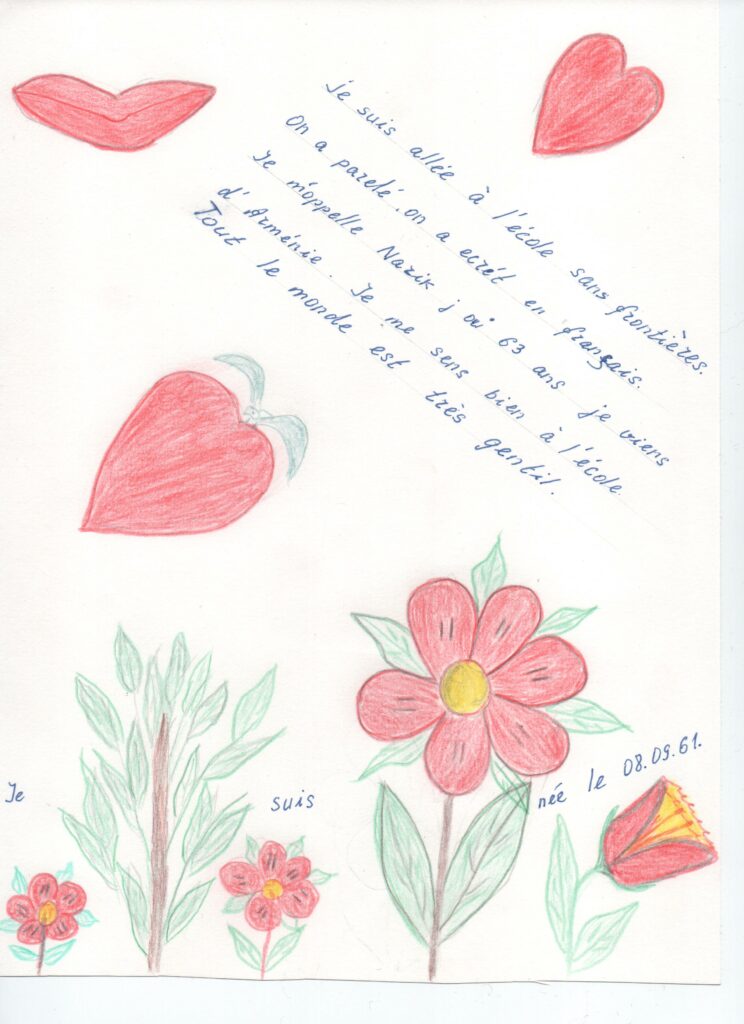 Je suis allée à l'école sans frontières.
On a parelé, on a ecrét en français.
Je m'oppelle Nazik j'ai 63 ans je viens
d'Arménie. Je me sens bien à l'école.
Tout le monde est très gentil.
Je suis née le 08.09.61.